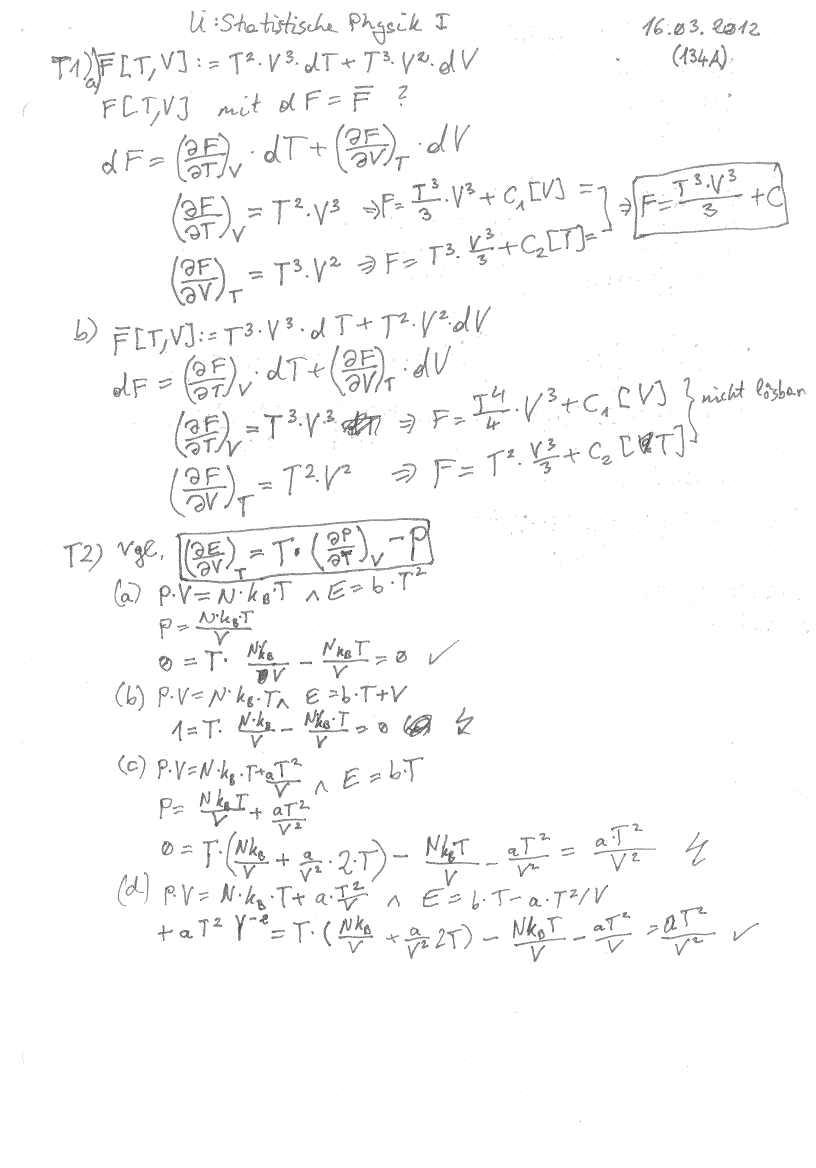 Ü: Statistische Physik I 16.03.2012
(134A)
T1) a) F̄[T,V] := T²·V³·dT + T³·V²·dV
F[T,V] mit dF = F̄ ?
dF = (∂F/∂T)_V · dT + (∂F/∂V)_T · dV
(∂F/∂T)_V = T²·V³ ⇒ F = T³/3 · V³ + C₁[V] = ⇒ F = T³·V³/3 + C
(∂F/∂V)_T = T³·V² ⇒ F = T³· V³/3 + C₂[T] =
b) F̄[T,V] := T³·V³·dT + T²·V²·dV
dF = (∂F/∂T)_V · dT + (∂F/∂V)_T · dV
(∂F/∂T)_V = T³·V³ ⇒ F = T⁴/4 · V³ + C₁[V] } nicht lösbar
(∂F/∂V)_T = T²·V² ⇒ F = T²· V³/3 + C₂[T]
T2) vgl. (∂E/∂V)_T = T·(∂P/∂T)_V − P
(a) P·V = N·k_B·T ∧ E = b·T²
P = N·k_B·T/V
0 = T· Nk_B/V − Nk_BT/V = 0 ✓
(b) P·V = N·k_B·T ∧ E = b·T + V
1 = T· N·k_B/V − Nk_B·T/V = 0 ↯
(c) P·V = N·k_B·T + aT²/V ∧ E = b·T
P = Nk_BT/V + aT²/V²
0 = T·(Nk_B/V + a/V² ·2·T) − Nk_BT/V − aT²/V² = a·T²/V² ↯
(d) P·V = N·k_B·T + a·T²/V ∧ E = b·T − a·T²/V
+ aT² V⁻² = T·(Nk_B/V + a/V² 2T) − Nk_BT/V − aT²/V = aT²/V² ✓